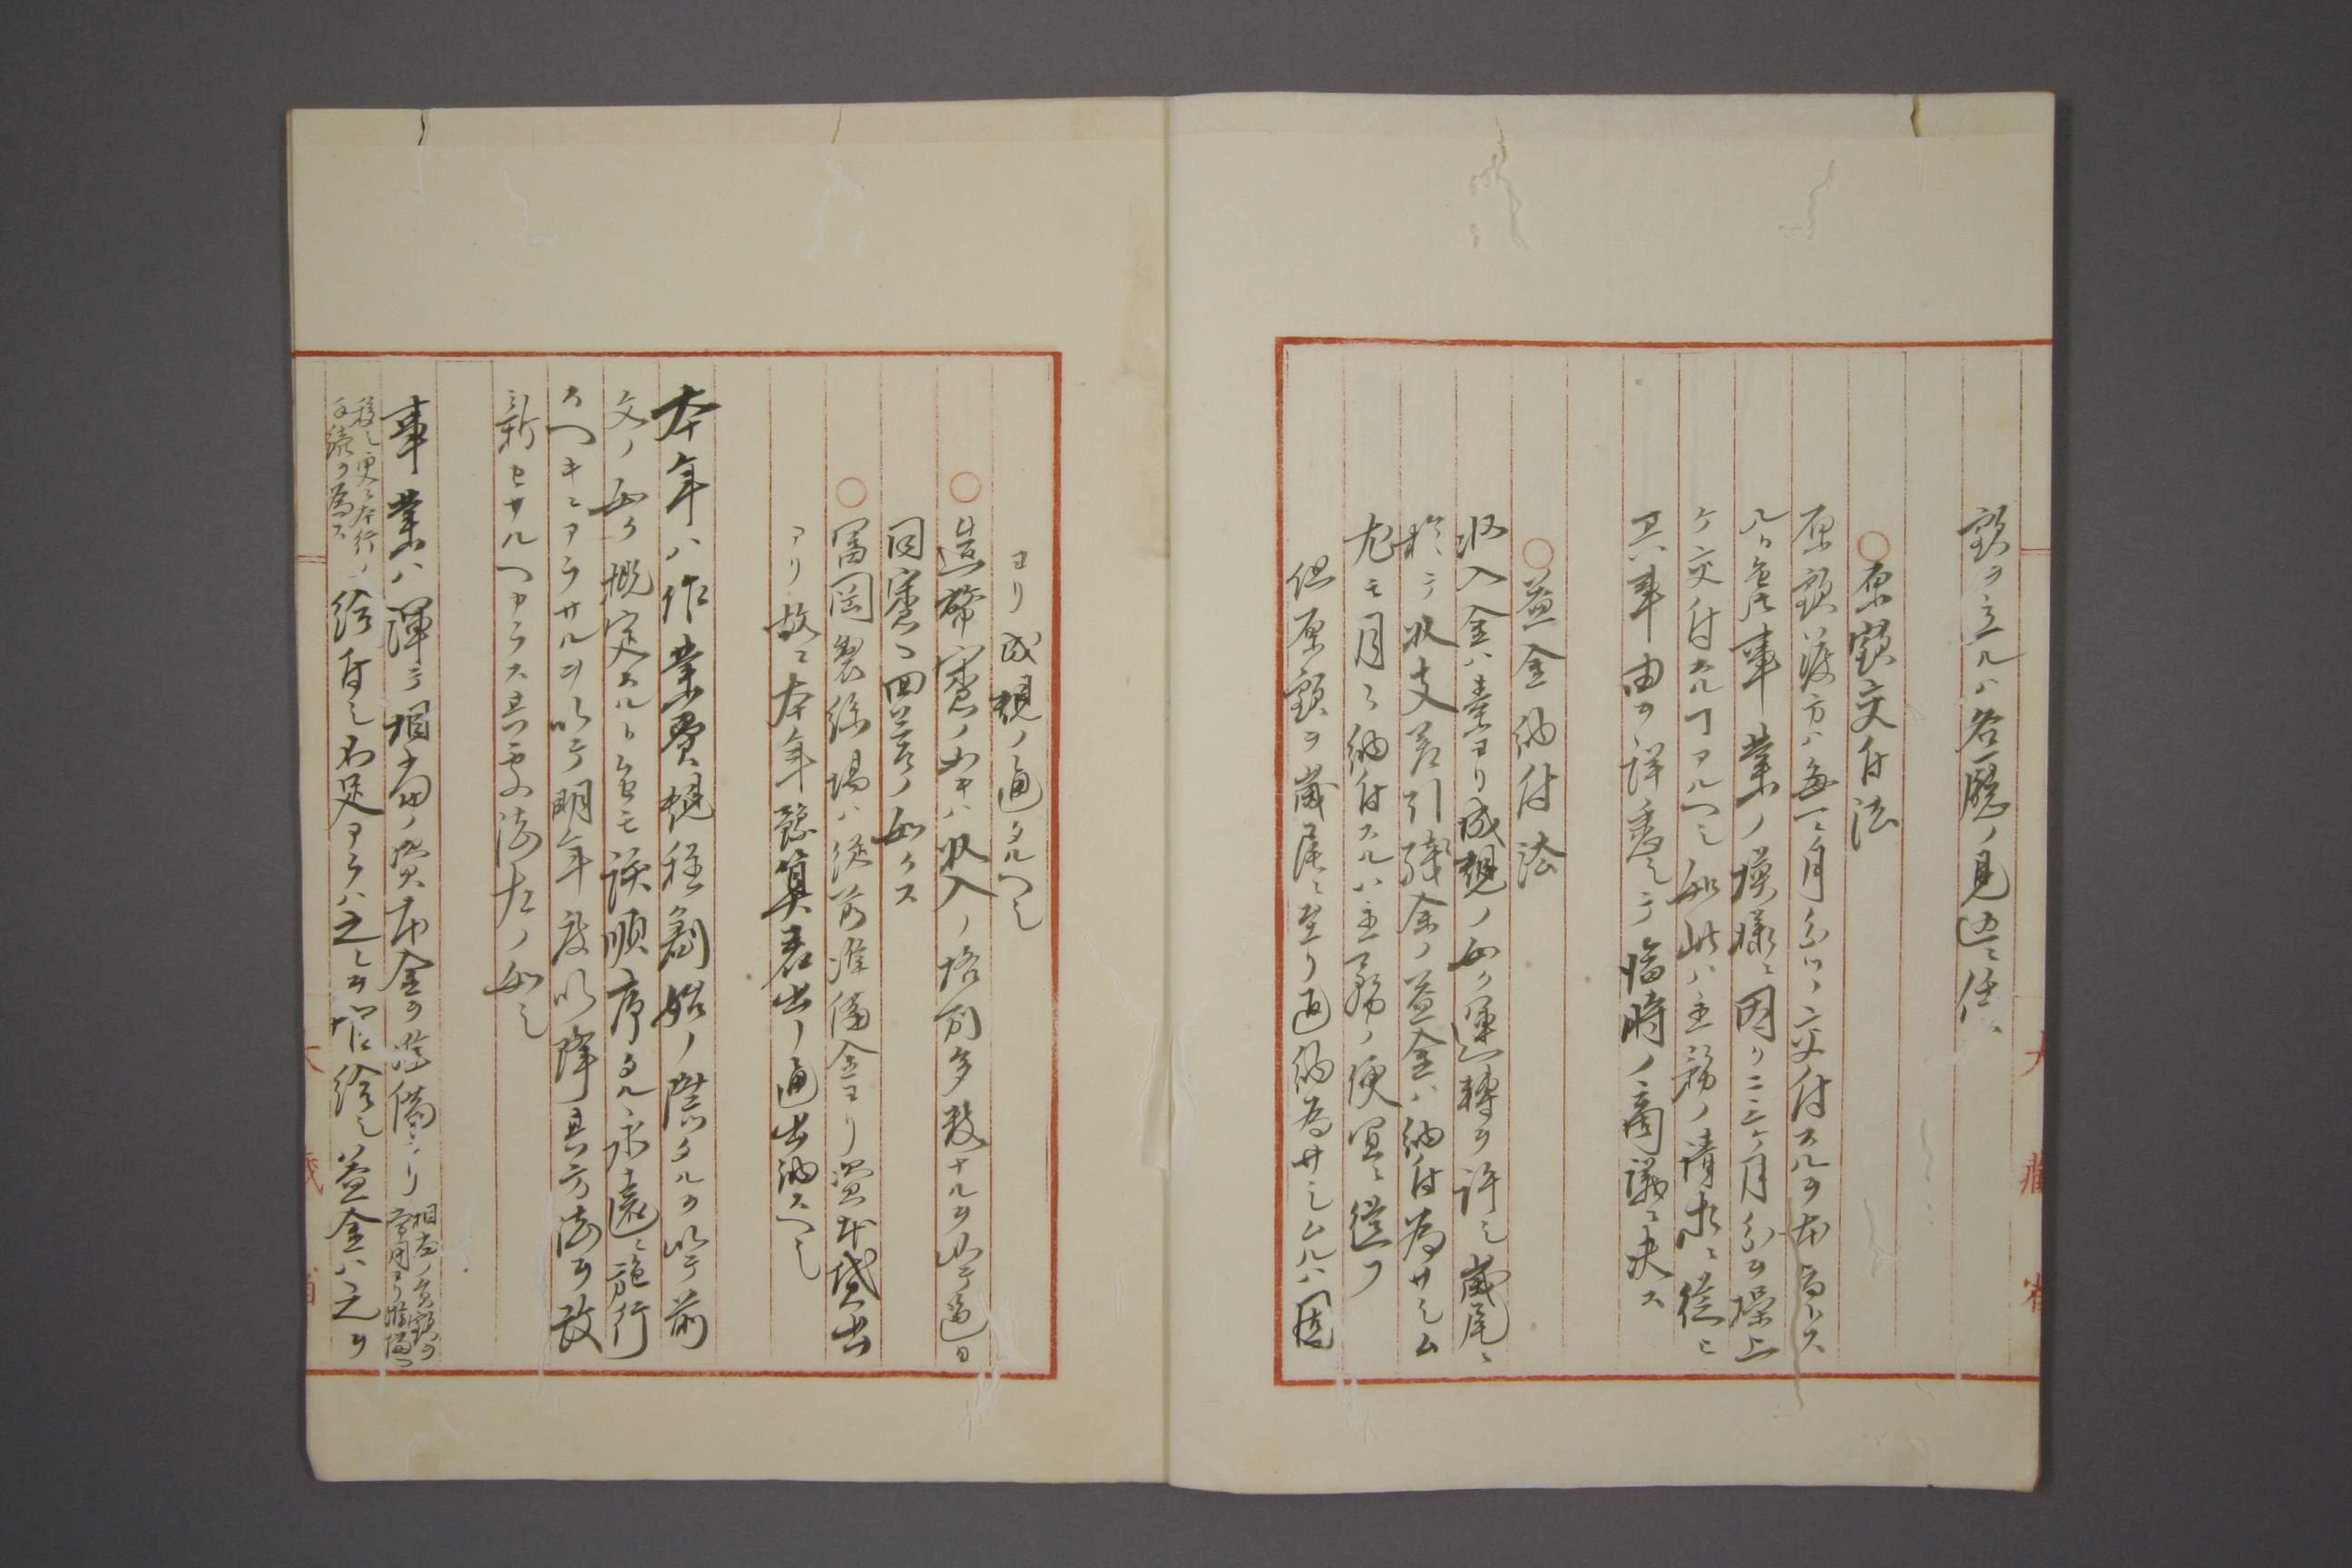 額ヲ立ルハ各廳ノ見込ニ任ス
○原額交付法
原額渡方ハ毎一ヶ月分ツヽ交付スルヲ本旨トス
ル𪜈各所事業ノ摸様ニ因リ二三ヶ月分ヲ操上
ケ交付スルヿアルヘシ如此ハ主務ノ請求ニ從ヒ
其事由ヲ詳悉シテ臨時ノ商議ニ決ス
○益金納付法
収入金ハ素ヨリ成規ノ如ク運轉ヲ許シ歳尾ニ
於テ収支差引殘余ノ益金ハ納付為サシム
尤モ月々納付スルハ主務ノ便宜ニ從フ
但原額ヲ歳尾ニ至リ返納為サシムルハ固
ヨリ成規ノ通タルヘシ
○造幣寮ノ如キハ収入ノ格別多数ナルヲ以テ過日
同寮ヘ回答ノ如クス
○冨岡製絲場ハ従前準備金ヨリ資本貸出
アリ故ニ本年豫算表出ノ通出納スヘシ
本年ハ作業費規程創始ノ際タルヲ以テ前
文ノ如ク概定スルト雖モ該順序タル永遠ニ施行
スヘキニアラサルヲ以テ明年度以降其方法ヲ改
新セサルヘカラス其方法左ノ如シ
事業ハ渾テ相当ノ資本金ヲ準備ヨリ相当ノ資額ヲ常用ヨリ準備ヘ
移シ更ニ本行ノ手続ヲ為ス給付シ不足アラハ之レヲ増給シ益金ハ之ヲ
大藏省